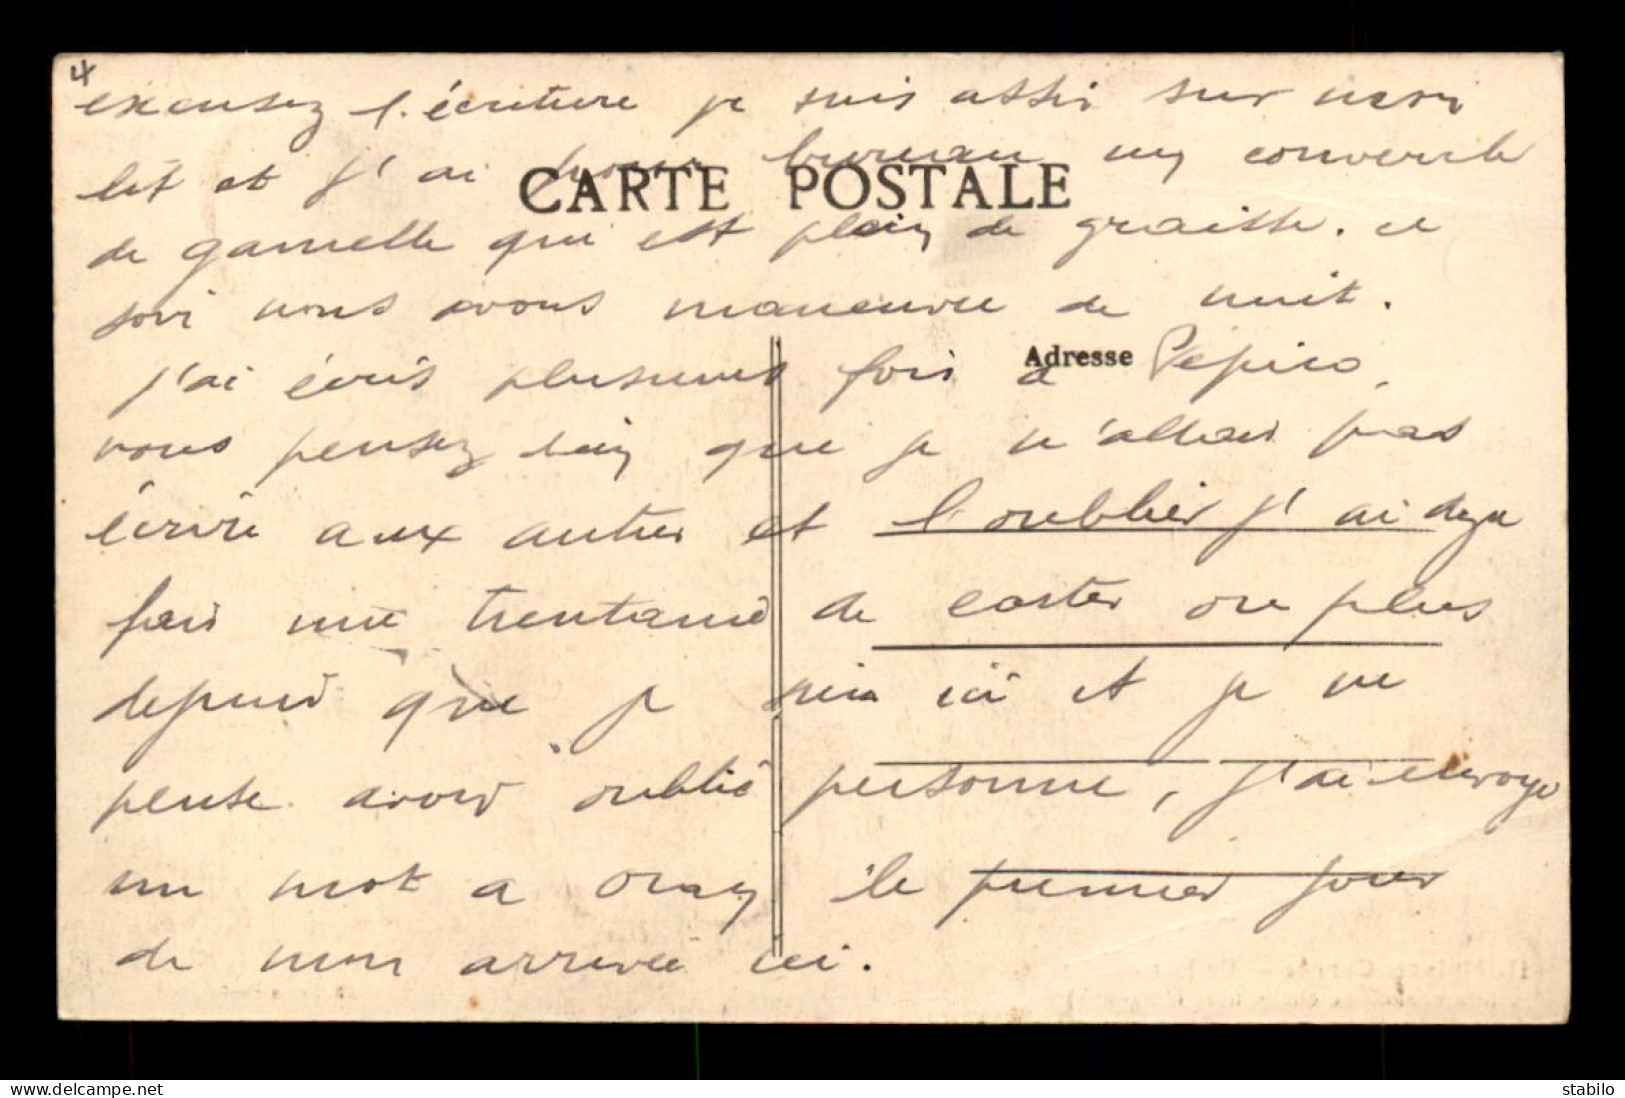 4
excusez l'écriture je suis assis sur mon
lit et j'ai pour bureau un couvercle
CARTE POSTALE
de gamelle qui est plein de graisse. ce
soir nous avons manœuvre de nuit.
j'ai écris plusieurs fois a Pépico,
Adresse
vous pensez bien que je n'allais pas
écrire aux autres et l'oublier j'ai deja
fais une trentaine de cartes ou plus
depuis que je suis ici et je ne
pense avoir oublié personne, j'ai envoye
un mot a le premier jour
de mon arrivée ici.
delcampe.net
stabilo